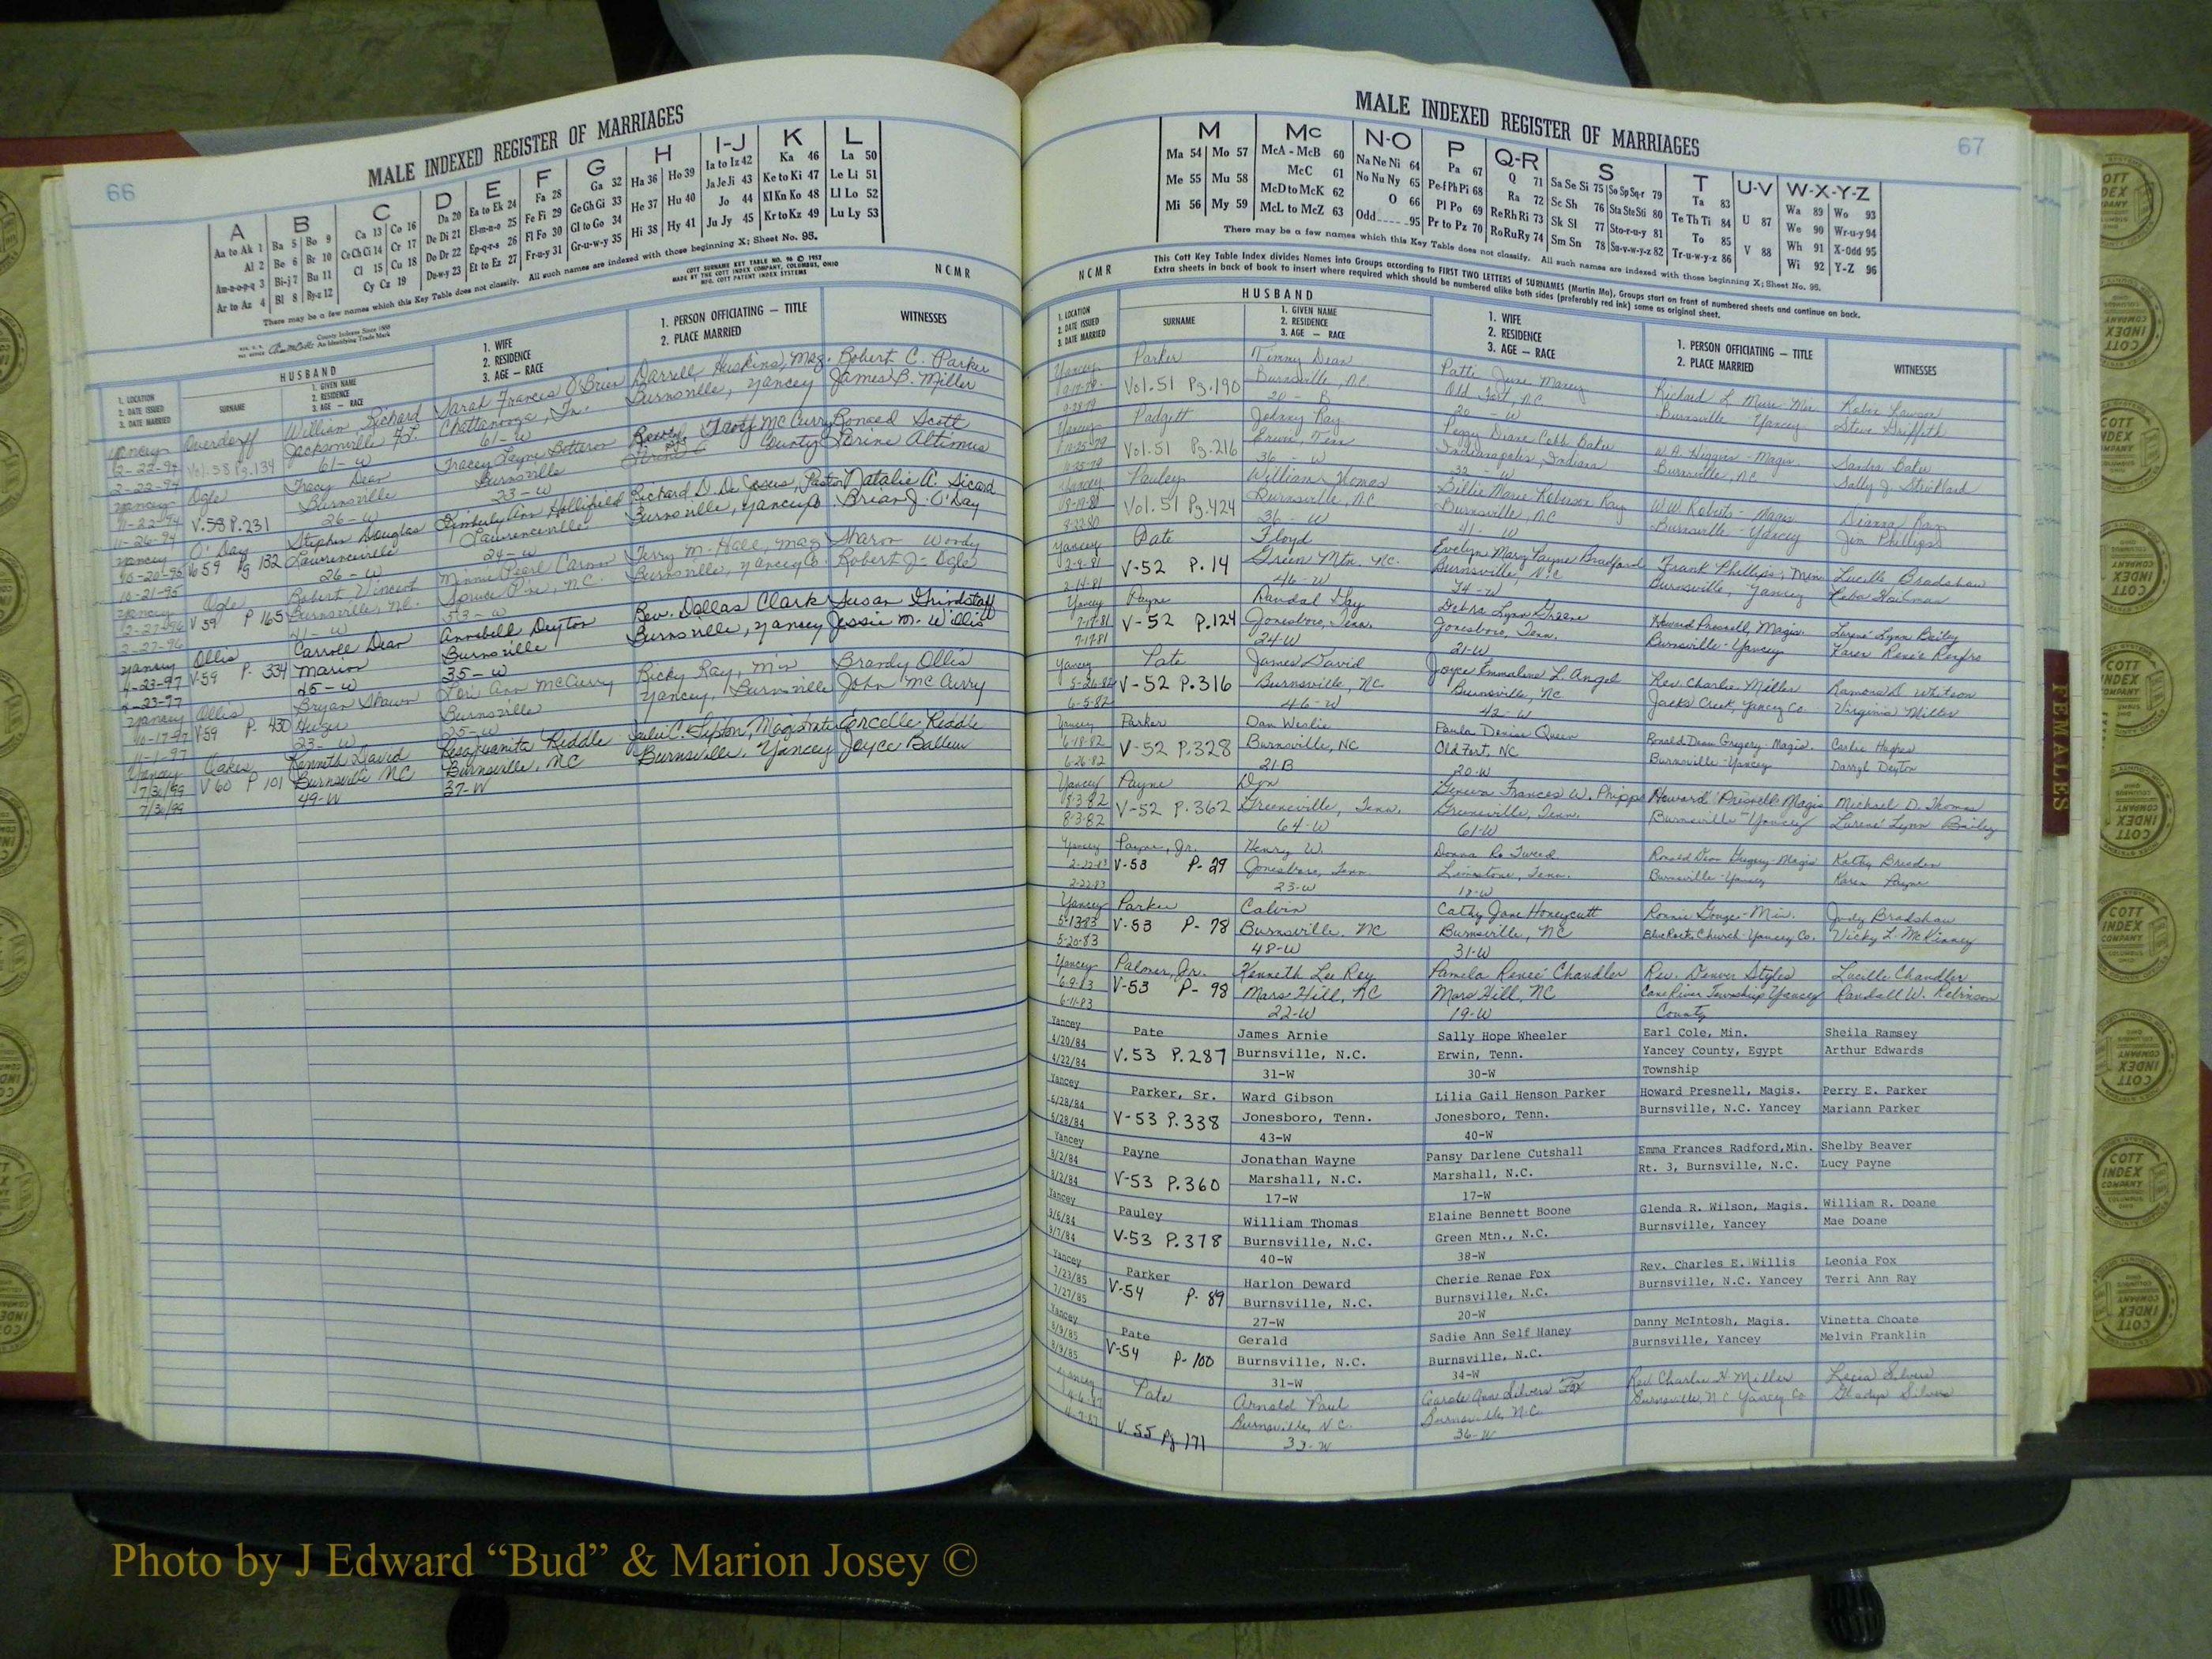 66
MALE INDEXED REGISTER OF MARRIAGES
A B C D E F G H I-J K L
Aa to Ak 1 Ba 5 Bo 9 Ca 13 Co 16 Da 20 Ea to Ek 24 Fa 28 Ga 32 Ha 36 Ho 39 Ia to Iz 42 Ka 46 La 50
Al 2 Be 6 Br 10 Ce Ch Ci 14 Cr 17 De Di 21 El-m-n-o 25 Fe Fi 29 Ge Gh Gi 33 He 37 Hu 40 Ja Je Ji 43 Ke to Ki 47 Le Li 51
Am-n-o-p-q 3 Bi-j 7 Bu 11 Cl 15 Cu 18 Do Dr 22 Ep-q-r-s 26 Fl Fo 30 Gl to Go 34 Hi 38 Hy 41 Jo 44 Kl Kn Ko 48 Ll Lo 52
Ar to Az 4 Bl 8 By-z 12 Cy Cz 19 Du-w-y 23 Et to Ez 27 Fr-u-y 31 Gr-u-w-y 35 Ju Jy 45 Kr to Kz 49 Lu Ly 53
There may be a few names which this Key Table does not classify. All such names are indexed with those beginning X; Sheet No. 95.
COTT SURNAME KEY TABLE NO. 96 © 1952
MADE BY THE COTT INDEX COMPANY, COLUMBUS, OHIO
MFG. COTT PATENT INDEX SYSTEMS
NCMR
County Indexes Since 1888
An Identifying Trade Mark
HUSBAND
1. LOCATION
2. DATE ISSUED
3. DATE MARRIED
SURNAME
1. GIVEN NAME
2. RESIDENCE
3. AGE — RACE
1. WIFE
2. RESIDENCE
3. AGE — RACE
1. PERSON OFFICIATING — TITLE
2. PLACE MARRIED
WITNESSES
Yancey Overdorff William Richard Sarah Frances O'Brien Darrell Huskins, Mag. Robert C. Parker
2-22-94 Vol. 58 Pg. 134 Jacksonville Fl. Chattanooga, Tn. Burnsville, Yancey James B. Miller
2-22-94 61-W 61-W
Yancey Ogle Tracy Dean Tracey Layne McCurry Ronald Scott
11-22-94 V.58 P.231 Burnsville Burnsville County
11-26-94 26-W 23-W
Yancey O'Day Stephen Douglas Kimberly Ann Hollifield Richard D. Pastor Natalie A. Sicard
10-20-95 V 59 Pg 132 Lawrenceville Lawrenceville Burnsville, Yancey Co Brian J. O'Day
10-21-95 26-W 24-W
Yancey Ogle Robert Vincent Minnie Pearl Terry M. Hall, Mag Sharon Woody
2-27-96 V 59 P 165 Burnsville, NC. Spruce Pine, N.C. Burnsville, Yancey Co. Robert J. Ogle
2-27-96 41-W
Yancey Ollis Carroll Dean Annabell Deyton Rev. Dallas Clark Susan Grindstaff
4-23-97 V-59 P. 334 Marion Burnsville Burnsville, Yancey Jessie M. Willis
45-W 35-W
Yancey Ollis Bryan Shawn Lori Ann McCurry Ricky Ray, Min Brandy Ollis
10-17-97 V-59 P. 430 Burnsville Yancey, Burnsville John McCurry
11-1-97 23-W 25-W
Yancey Oakes Kenneth David Riddle Julie C. Tipton, Magistrate Riddle
7/31/99 V 60 P 101 Burnsville NC Burnsville, NC Burnsville, Yancey Joyce
49-W 37-W
67
MALE INDEXED REGISTER OF MARRIAGES
M Mc N-O P Q-R S T U-V W-X-Y-Z
Ma 54 Mo 57 McA - McB 60 Na Ne Ni 64 Pa 67 Q 71 Sa Se Si 75 So Sp Sq-r 79 Ta 83 U 87 Wa 89 Wo 93
Me 55 Mu 58 McC 61 No Nu Ny 65 Pe-f Ph Pi 68 Ra 72 Sc Sh 76 Sta Ste Sti 80 Te Th Ti 84 V 88 We 90 Wr-u-y 94
Mi 56 My 59 McD to McK 62 O 66 Pl Po 69 Re Rh Ri 73 Sk Sl 77 Sto-r-u-y 81 To 85 Wh 91 X-Odd 95
McL to McZ 63 Odd 95 Pr to Pz 70 Ro Ru Ry 74 Sm Sn 78 Su-v-w-y-z 82 Tr-u-w-y-z 86 Wi 92 Y-Z 96
There may be a few names which this Key Table does not classify. All such names are indexed with those beginning X; Sheet No. 95.
This Cott Key Table Index divides Names into Groups according to FIRST TWO LETTERS of SURNAMES (Martin Ma), Groups start on front of numbered sheets and continue on back.
Extra sheets in back of book to insert where required which should be numbered alike both sides (preferably red ink) same as original sheet.
NCMR
HUSBAND
1. LOCATION
2. DATE ISSUED
3. DATE MARRIED
SURNAME
1. GIVEN NAME
2. RESIDENCE
3. AGE — RACE
1. WIFE
2. RESIDENCE
3. AGE — RACE
1. PERSON OFFICIATING — TITLE
2. PLACE MARRIED
WITNESSES
Yancey Parker Timmy Dean Patti June
Vol. 51 Pg. 190 Burnsville, NC. Old Fort, NC. Richard L.
9-28-79 20 - B 20 - W Burnsville - Yancey Steve Griffith
Yancey Padgett Johnny Ray Peggy Diane Cobb
Vol. 51 Pg. 216 Erwin, Tenn Indianapolis, Indiana W.A. Higgins - Magis. Sandra
36 - W 32 - W Burnsville, NC Sally J. Strickland
Yancey Pauley William Thomas Billie Marie Roberson Ray
8-19-80 Vol. 51 Pg. 424 Burnsville, NC Burnsville, NC W.W. Roberts - Magis Dianna Ray
8-22-80 36 - W 41 - W Burnsville - Yancey Jim Phillips
Yancey Pate Floyd Evelyn Mary Payne Bradford
2-9-81 V-52 P. 14 Green Mtn. NC. Burnsville, N.C. Frank Phillips, Min. Lucille Bradshaw
2-14-81 46-W 34-W Burnsville, Yancey
Yancey Payne Randal Debra Lynn Greene
7-17-81 V-52 P.124 Jonesboro, Tenn. Jonesboro, Tenn. Howard Presnell, Magis. Larene' Lynn Bailey
7-17-81 24-W 21-W Burnsville-Yancey Karen Renée Renfro
Yancey Pate James David Joyce Emmaline L. Angel
V-52 P.316 Burnsville, NC. Burnsville, NC Rev. Charlie Miller Ramona D. Whitson
6-5-82 46-W 42-W Jacks Creek, Yancey Co. Virginia Miller
Yancey Parker Dan Weslie Paula Denise Queen
6-18-82 V-52 P.328 Burnsville, NC Old Fort, NC Ronald Dean Gregory-Magis. Hughes
6-26-82 21-B 20-W Burnsville-Yancey Darryl Deyton
Yancey Payne Don Geneva Frances W. Phipps Howard Presnell-Magis Michael D. Thomas
8-3-82 V-52 P.362 Greeneville, Tenn. Greeneville, Tenn. Burnsville-Yancey Larene' Lynn Bailey
8-3-82 64-W 61-W
Yancey Payne, Jr. Henry W. Donna R. Tweed Ronald Dean Gregory-Magis Kathy
2-22-83 V-53 P-29 Jonesboro, Tenn. Limestone, Tenn. Burnsville-Yancey Karen Payne
2-22-83 23-W 18-W
Yancey Parker Calvin Cathy Jane Honeycutt Ronnie Gouge-Min. Judy Bradshaw
5-13-83 V-53 P-78 Burnsville, NC Burnsville, NC Blue Rock Church-Yancey Co. Vicky L. McKinney
5-20-83 48-W 31-W
Yancey Palmer, Jr. Kenneth Lee Roy Pamela Reneé Chandler Rev. Denver Styles Lucille Chandler
6-9-83 V-53 P-98 Mars Hill, NC Mars Hill, NC Cane River Township Yancey Randall W. Robinson
6-11-83 22-W 19-W County
Yancey Pate James Arnie Sally Hope Wheeler Earl Cole, Min. Sheila Ramsey
4/20/84 V.53 P.287 Burnsville, N.C. Erwin, Tenn. Yancey County, Egypt Arthur Edwards
4/22/84 31-W 30-W Township
Yancey Parker, Sr. Ward Gibson Lilia Gail Henson Parker Howard Presnell, Magis. Perry E. Parker
6/28/84 V-53 P.338 Jonesboro, Tenn. Jonesboro, Tenn. Burnsville, N.C. Yancey Mariann Parker
6/28/84 43-W 40-W
Yancey Payne Jonathan Wayne Pansy Darlene Cutshall Emma Frances Radford,Min. Shelby Beaver
8/2/84 V-53 P.360 Marshall, N.C. Marshall, N.C. Rt. 3, Burnsville, N.C. Lucy Payne
8/2/84 17-W 17-W
Yancey Pauley William Thomas Elaine Bennett Boone Glenda R. Wilson, Magis. William R. Doane
9/6/84 V-53 P.378 Burnsville, N.C. Green Mtn., N.C. Burnsville, Yancey Mae Doane
9/7/84 40-W 38-W
Yancey Parker Harlon Deward Cherie Renae Fox Rev. Charles E. Willis Leonia Fox
7/23/85 V-54 P-89 Burnsville, N.C. Burnsville, N.C. Burnsville, N.C. Yancey Terri Ann Ray
7/27/85 27-W 20-W
Yancey Pate Gerald Sadie Ann Self Haney Danny McIntosh, Magis. Vinetta Choate
8/9/85 V-54 P-100 Burnsville, N.C. Burnsville, N.C. Burnsville, Yancey Melvin Franklin
8/9/85 31-W 34-W
Yancey Pate Arnold Paul Carole Ann Silvers Fox Rev Charlie H Miller Silvers
V.55 Pg 171 Burnsville, N.C. Burnsville, N.C. Burnsville, N.C. Yancey Co Gladys Silvers
33-W 36-W
FEMALES
COTT INDEX COMPANY
Photo by J Edward “Bud” & Marion Josey ©